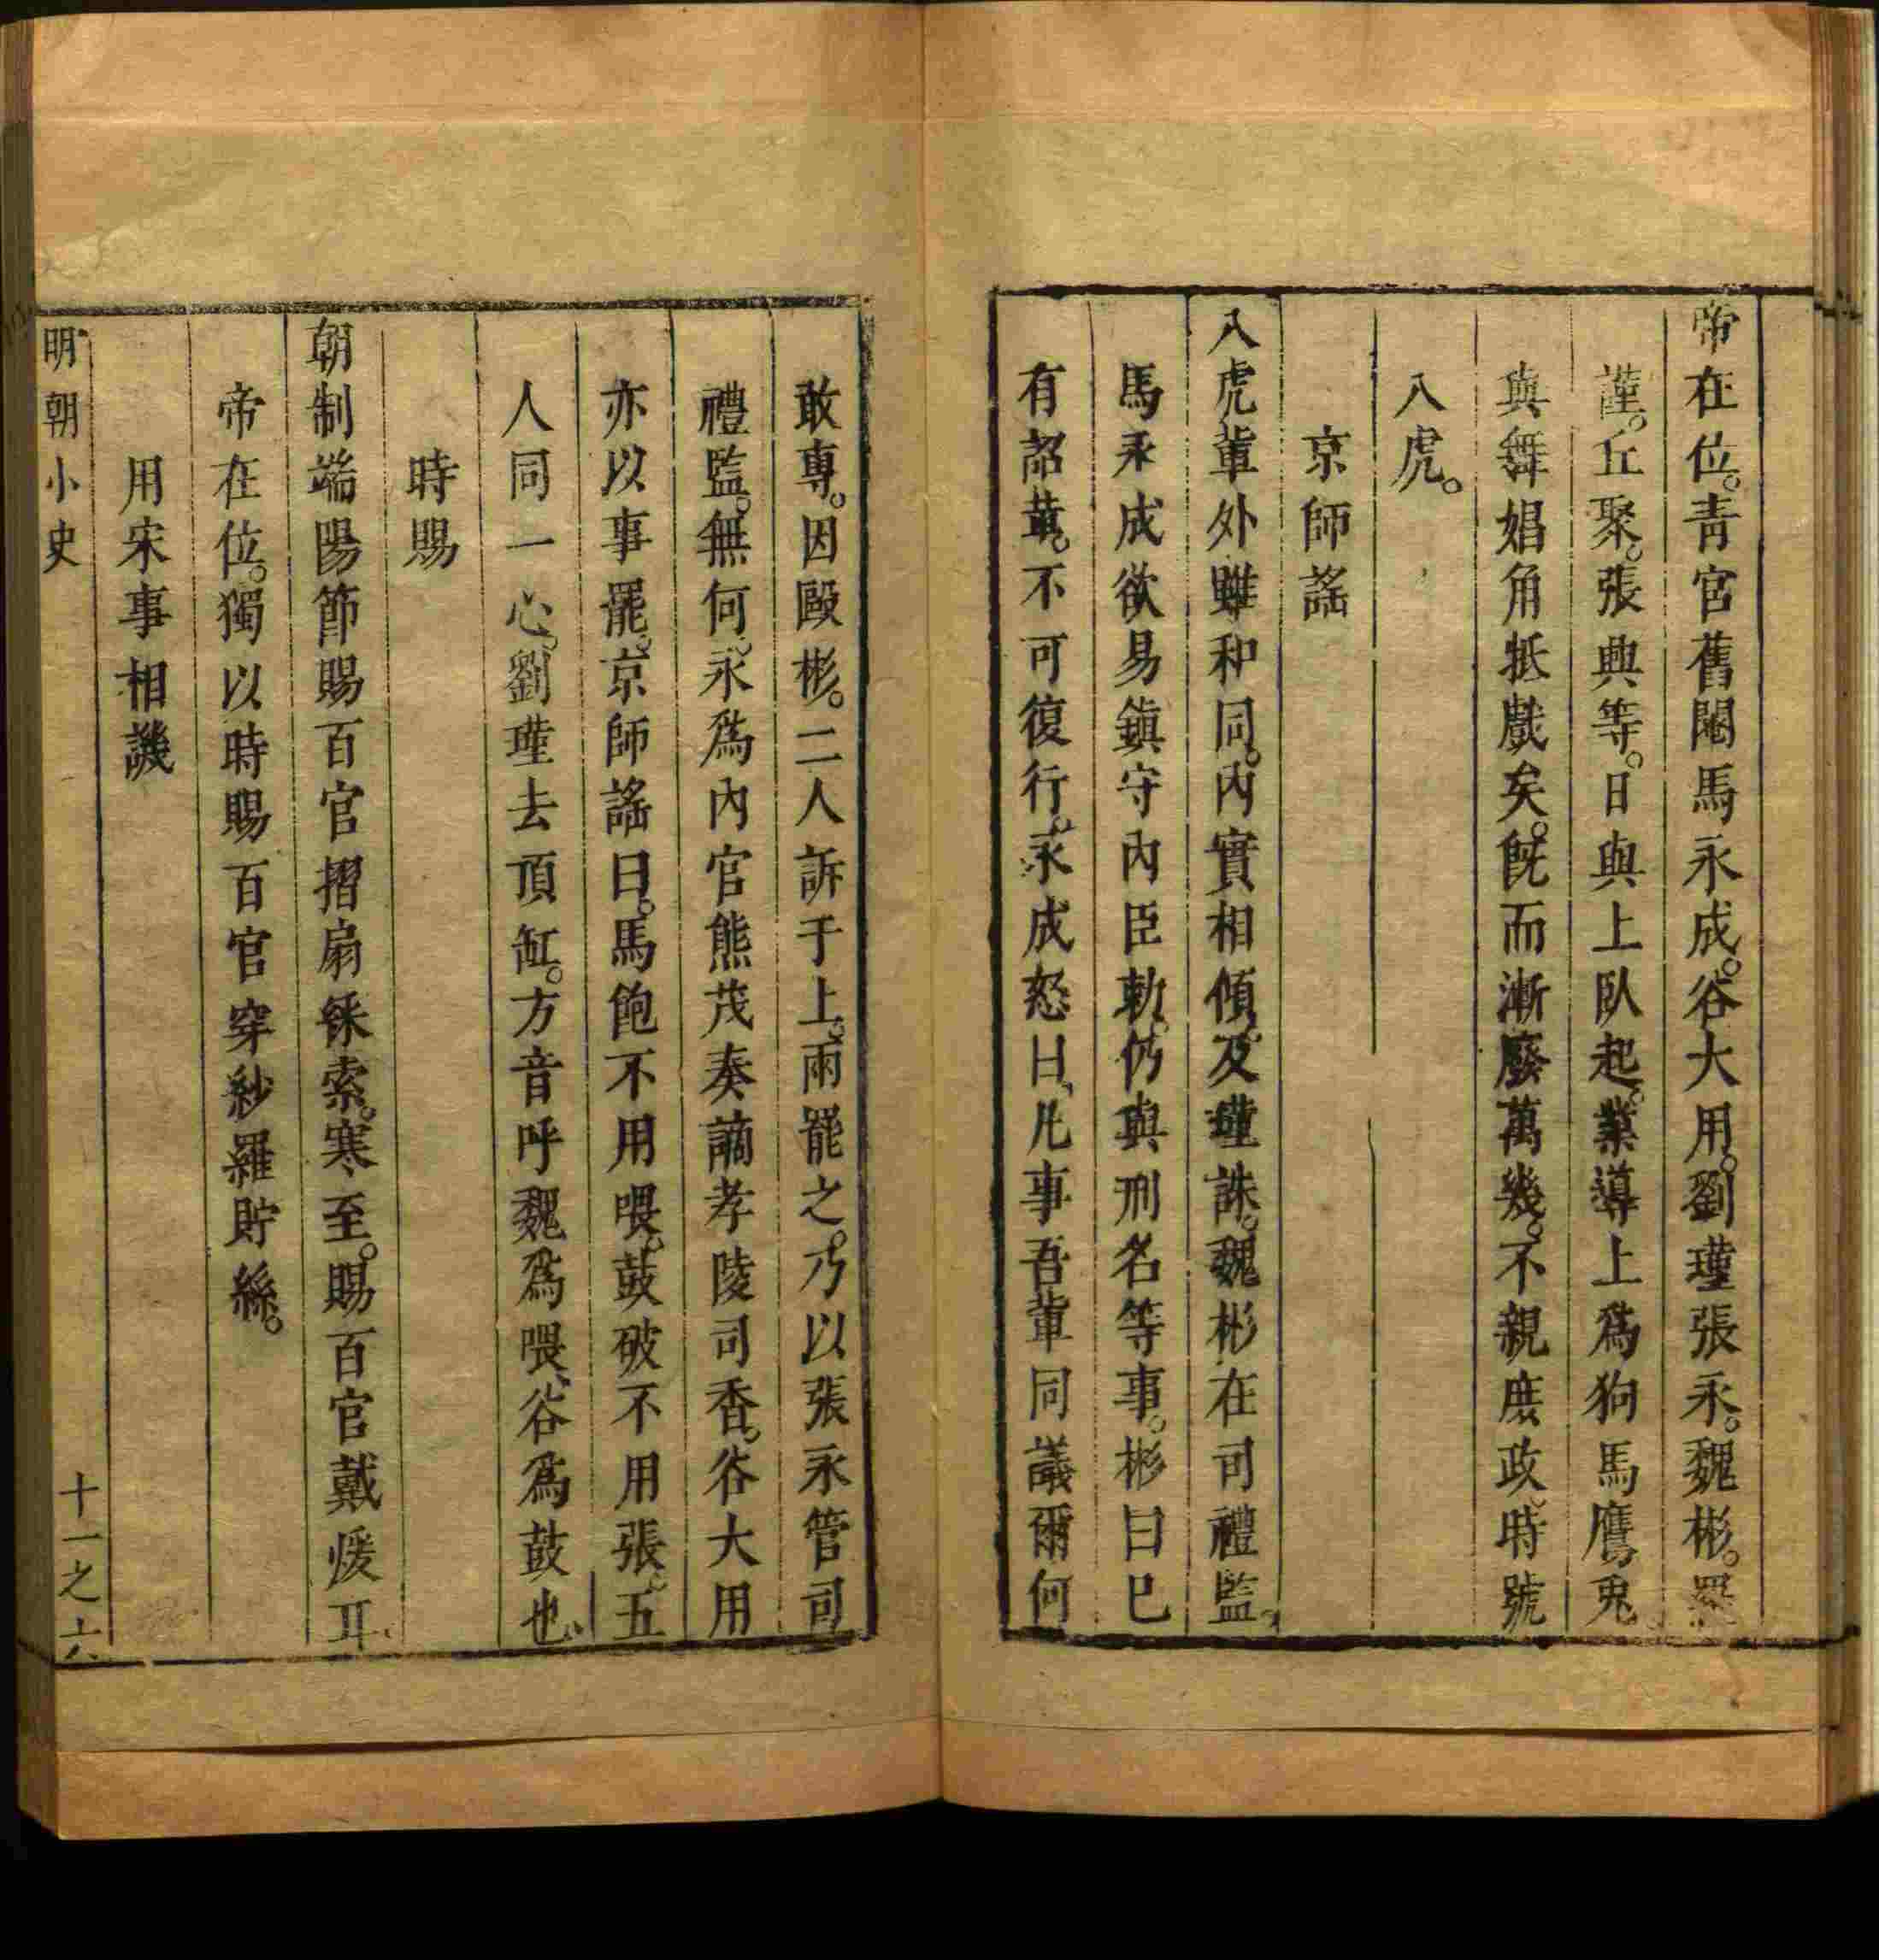 帝在位。青宮舊閹馬永成。谷大用。劉瑾張永。魏彬。羅
謹。丘聚。張興等。日與上臥起。業導上為狗馬鷹兎
與舞娼角抵戲矣。旣而漸廢萬幾。不親庶政。時號
八虎。
京師謠
八虎輩外雖和同。內實相傾。及瑾誅。魏彬在司禮監。
馬永成欲易鎮守內臣勑。仍與刑名等事。彬曰已
有詔革。不可復行。永成怒曰、凡事吾輩同議爾何
敢專。因毆彬。二人訴于上。兩罷之。乃以張永管司
禮監。無何。永爲內官熊茂奏謫孝陵司香。谷大用
亦以事罷。京師謠曰。馬飽不用喂。鼓破不用張。五
人同一心。劉瑾去頂缸。方音呼魏爲喂、谷爲鼓也。
時賜
朝制端陽節賜百官摺扇綵索。寒至。賜百官戴煖耳。
帝在位。獨以時賜百官穿紗羅貯絲。
用宋事相譏
明朝小史
十一之六